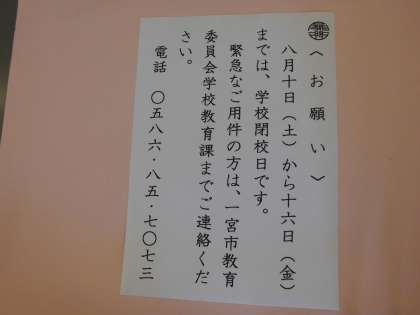 〈お願い〉
八月十日（土）から十六日（金）
までは、学校閉校日です。
緊急なご用件の方は、一宮市教育
委員会学校教育課までご連絡くだ
さい。
電話　〇五八六・八五・七〇七三